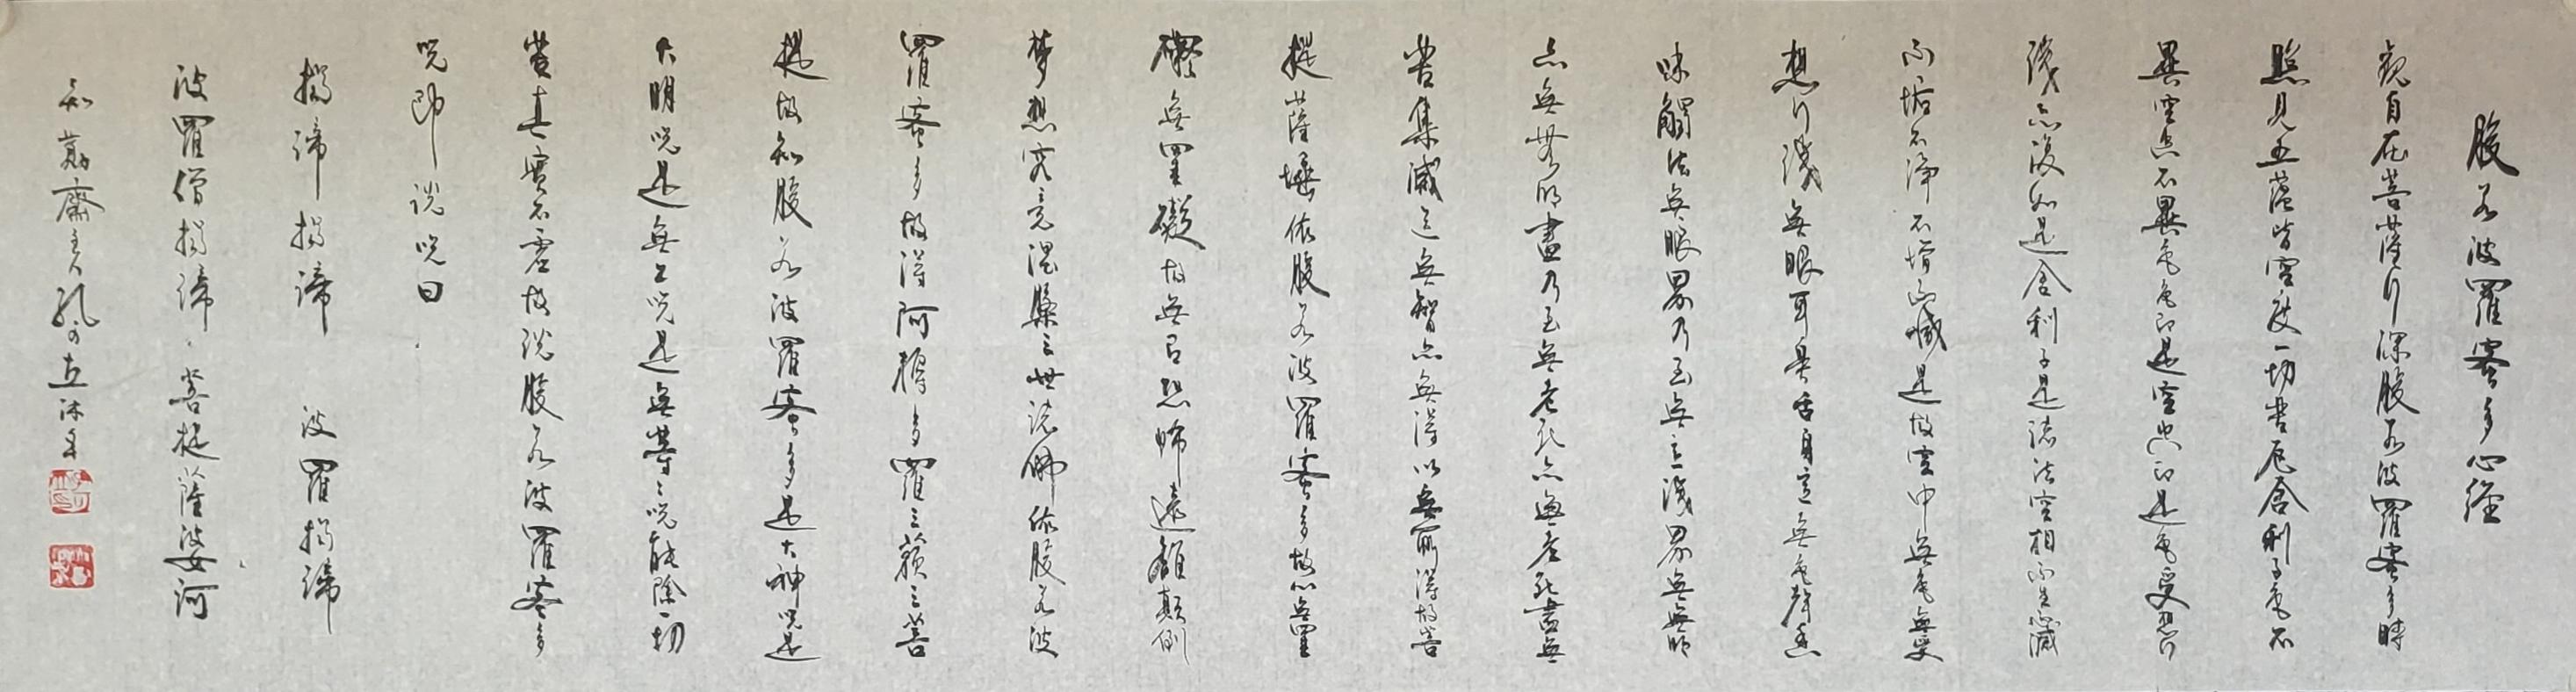 般若波羅蜜多心経
観自在菩薩行深般若波羅蜜多時
照見五蘊皆空度一切苦厄舍利子色不
異空空不異色色即是空空即是色受想行
識亦復如是舍利子是諸法空相不生不滅
不垢不淨不增不減是故空中無色無受
想行識無眼耳鼻舌身意無色聲香
味觸法無眼界乃至無意識界無無明
亦無無明盡乃至無老死亦無老死盡無
苦集滅道無智亦無得以無所得故菩
提薩埵依般若波羅蜜多故心無罣
礙無罣礙故無有恐怖遠離顛倒
夢想究竟涅槃三世諸佛依般若波
羅蜜多故得阿耨多羅三藐三菩
提故知般若波羅蜜多是大神咒是
大明咒是無上咒是無等々咒能除一切
苦真實不虛故說般若波羅蜜多
咒即說咒曰
揭諦揭諦 波羅揭諦
波羅僧揭諦 菩提薩婆訶
知齋主人